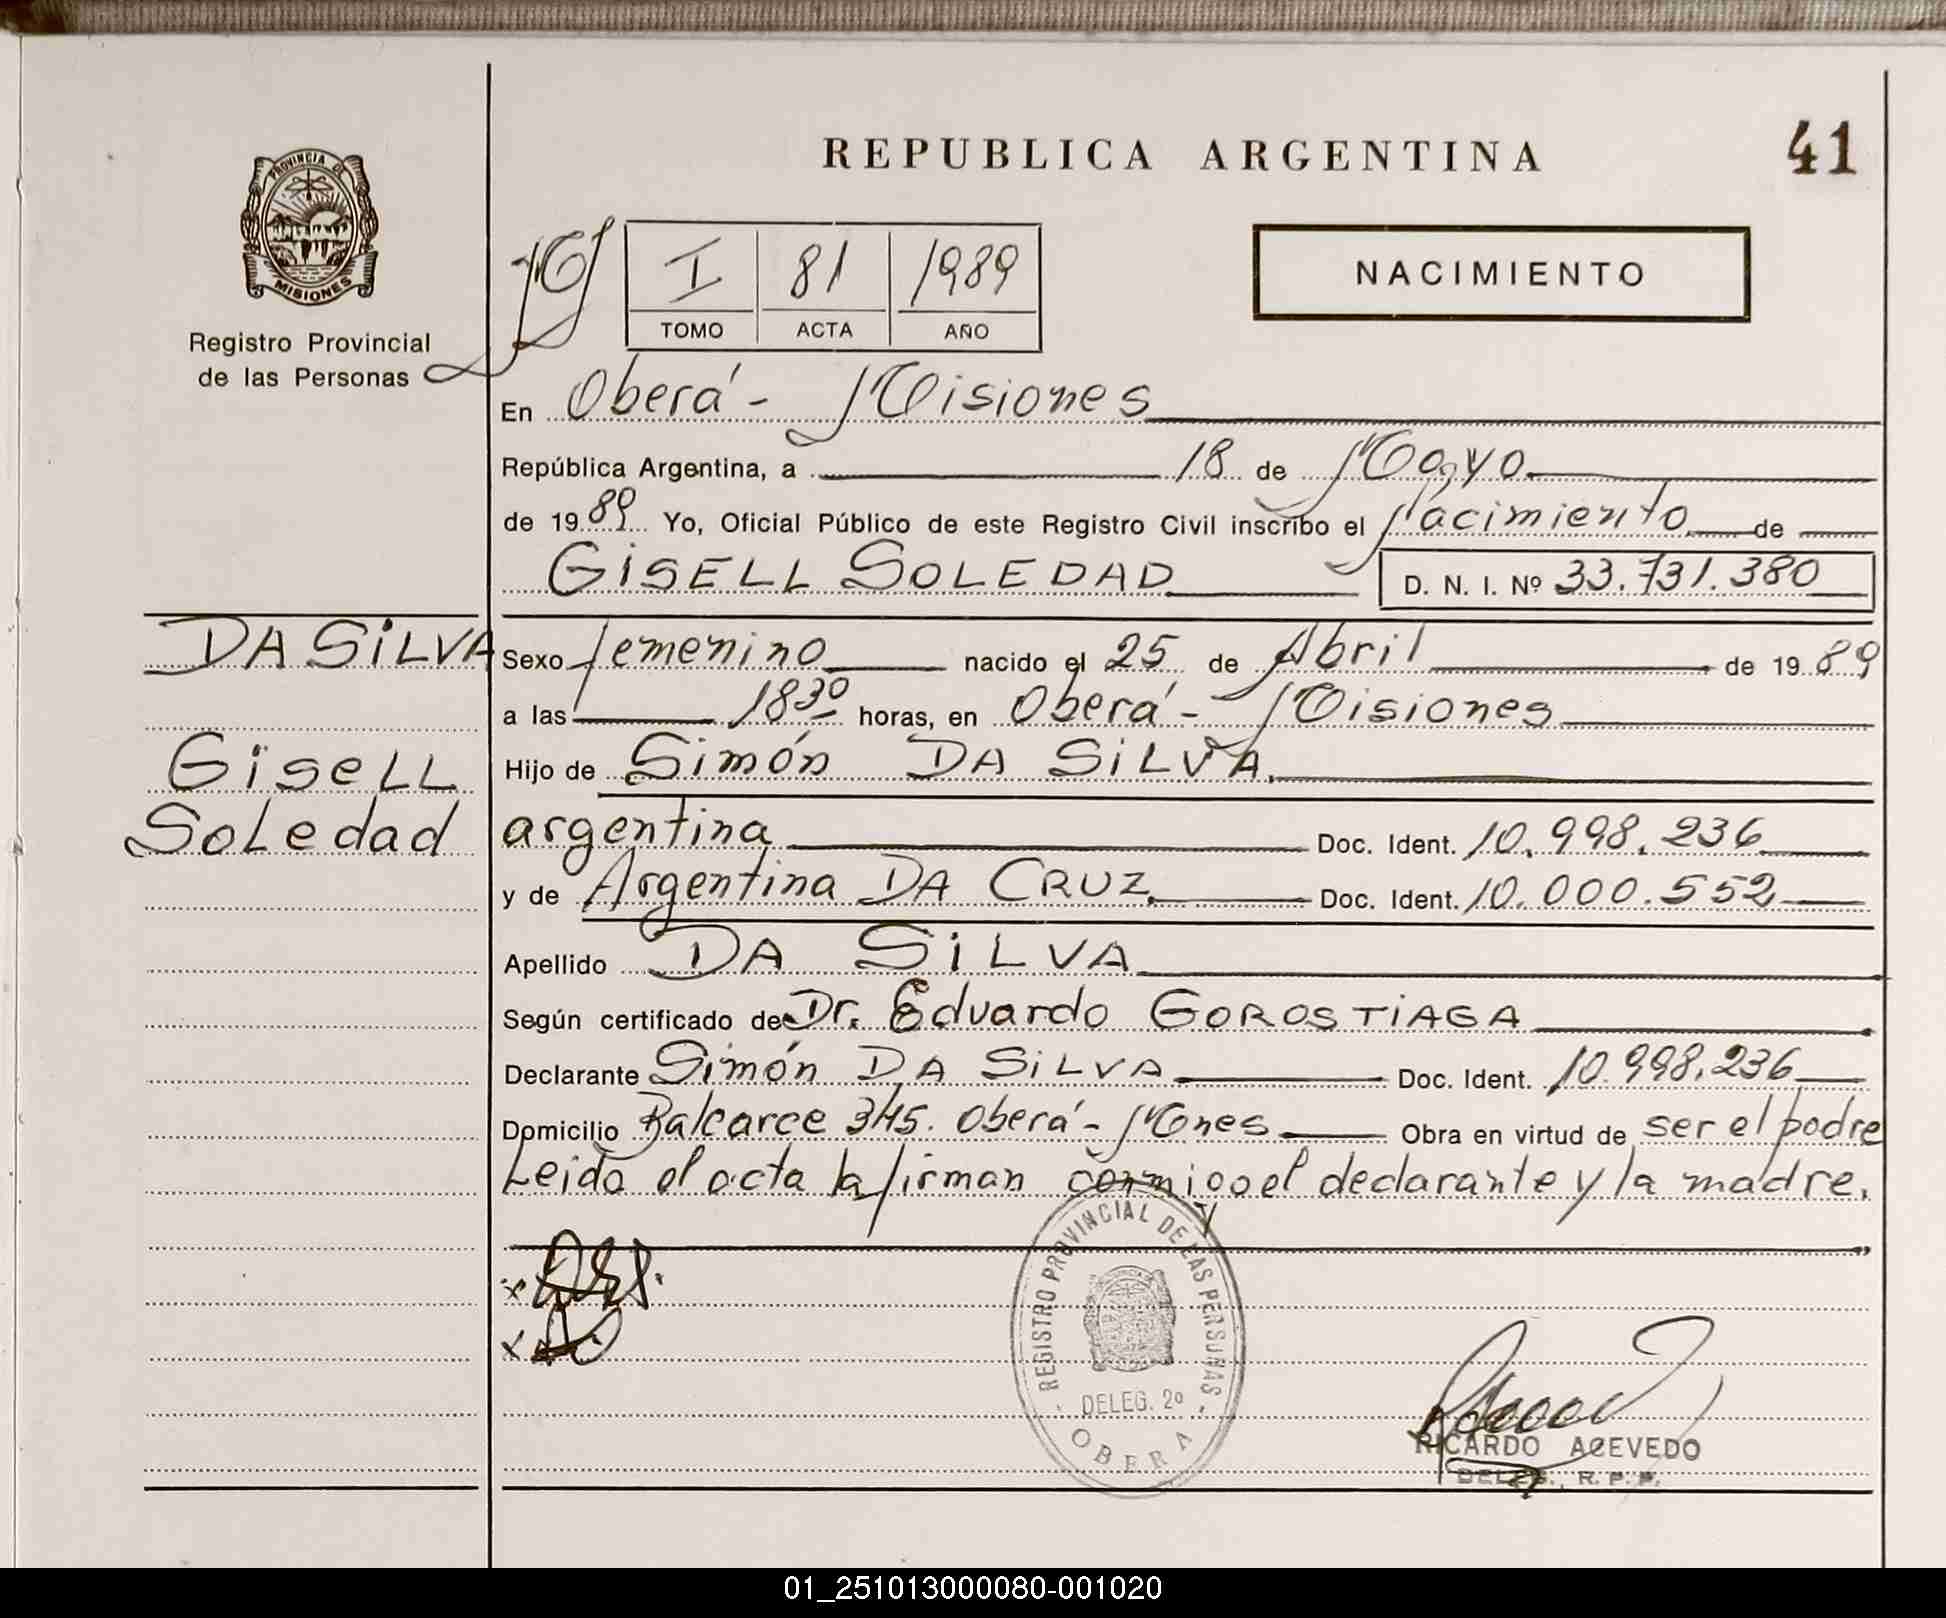 REPUBLICA ARGENTINA
41
PROVINCIA DE
MISIONES
Registro Provincial
de las Personas
I 81 1989
TOMO ACTA AÑO
NACIMIENTO
En Oberá - Misiones
República Argentina, a 18 de Mayo
de 1989 Yo, Oficial Público de este Registro Civil inscribo el Nacimiento de
GISELL SOLEDAD
D. N. I. Nº 33.731.380
DA SILVA
Gisell
Soledad
Sexo femenino nacido el 25 de Abril de 1989
a las 18³⁰ horas, en Oberá - Misiones
Hijo de Simón DA SILVA.
argentina Doc. Ident. 10.998.236
y de Argentina DA CRUZ. Doc. Ident. 10.000.552
Apellido DA SILVA
Según certificado de Dr. Eduardo GOROSTIAGA
Declarante Simón DA SILVA Doc. Ident. 10.998.236
Domicilio Balcarce 345. Oberá - Mnes Obra en virtud de ser el padre
Leida el acta la firman conmigo el declarante y la madre.
REGISTRO PROVINCIAL DE LAS PERSONAS
DELEG. 2º
OBERA
RICARDO ACEVEDO
DELEG., R. P. P.
01_251013000080-001020